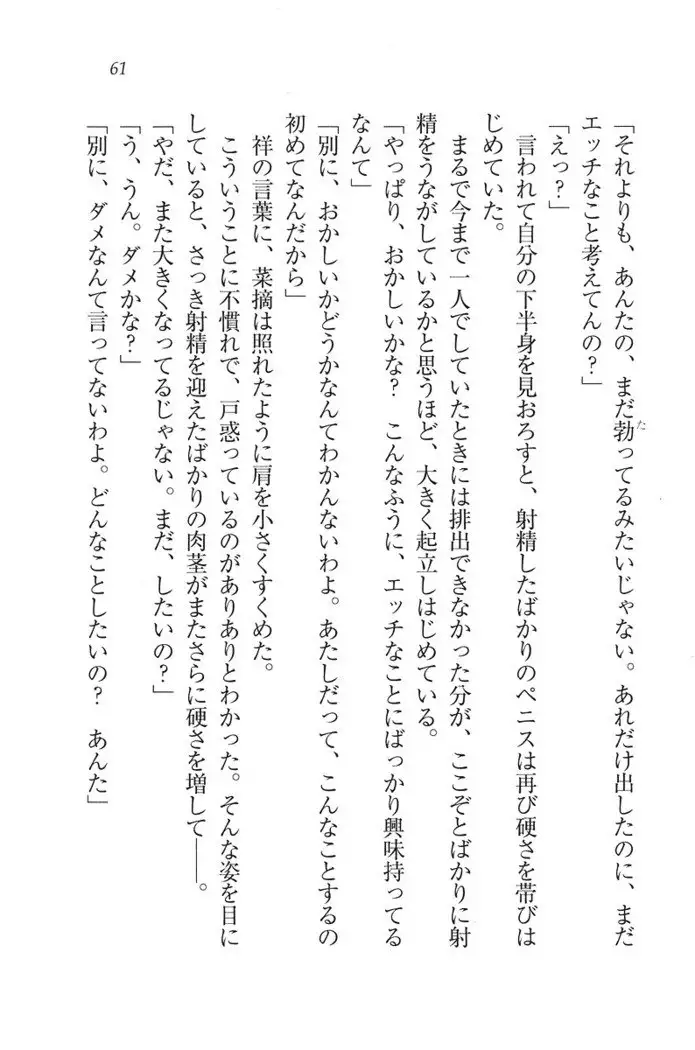 61
「それよりも、あんたの、まだ勃ってるみたいじゃない。あれだけ出したのに、まだ
エッチなこと考えてんの？」
「えっ？」
言われて自分の下半身を見おろすと、射精したばかりのペニスは再び硬さを帯びは
じめていた。
まるで今まで一人でしていたときには排出できなかった分が、ここぞとばかりに射
精をうながしているかと思うほど、大きく起立しはじめている。
「やっぱり、おかしいかな？　こんなふうに、エッチなことにばっかり興味持ってる
なんて」
「別に、おかしいかどうかなんてわかんないわよ。あたしだって、こんなことするの
初めてなんだから」
祥の言葉に、菜摘は照れたように肩を小さくすくめた。
こういうことに不慣れで、戸惑っているのがありありとわかった。そんな姿を目に
していると、さっき射精を迎えたばかりの肉茎がまたさらに硬さを増して――。
「やだ、また大きくなってるじゃない。まだ、したいの？」
「う、うん。ダメかな？」
「別に、ダメなんて言ってないわよ。どんなことしたいの？　あんた」